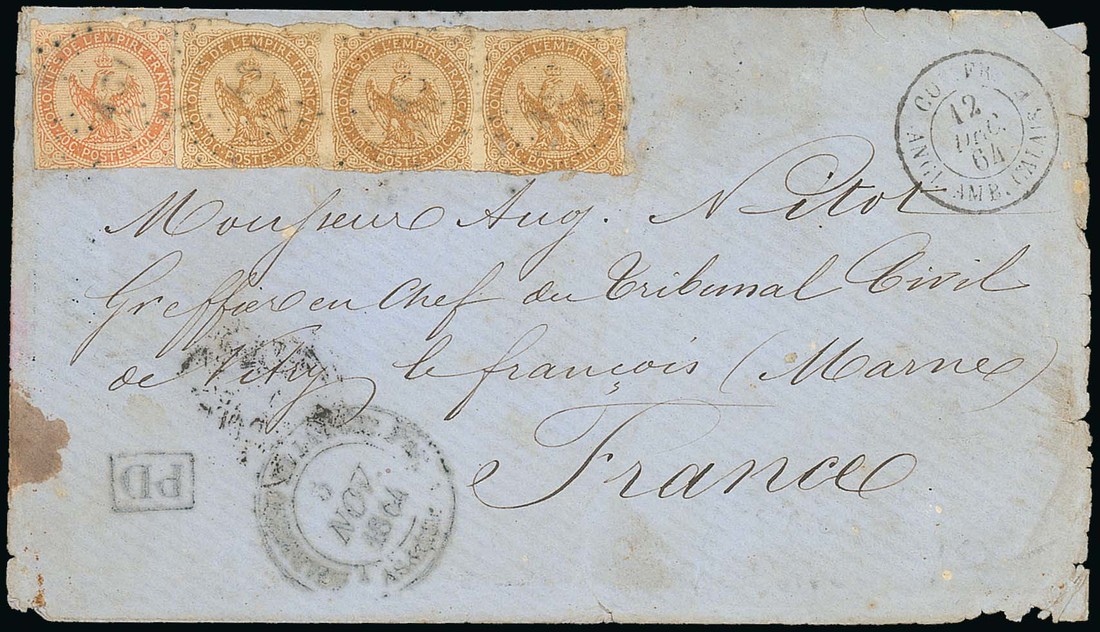 COLONIES DE L'EMPIRE FRANÇAIS
40c. POSTES 40c.
COLONIES DE L'EMPIRE FRANÇAIS
10c. POSTES 10c.
COLONIES DE L'EMPIRE FRANÇAIS
10c. POSTES 10c.
COLONIES DE L'EMPIRE FRANÇAIS
10c. POSTES 10c.
12
DEC.
64
ANGL. AMB. CALAIS
Monsieur Aug. Nitot
Greffier en Chef du Tribunal Civil
de Vitry le françois (Marne)
France
PD
NOV.
1864